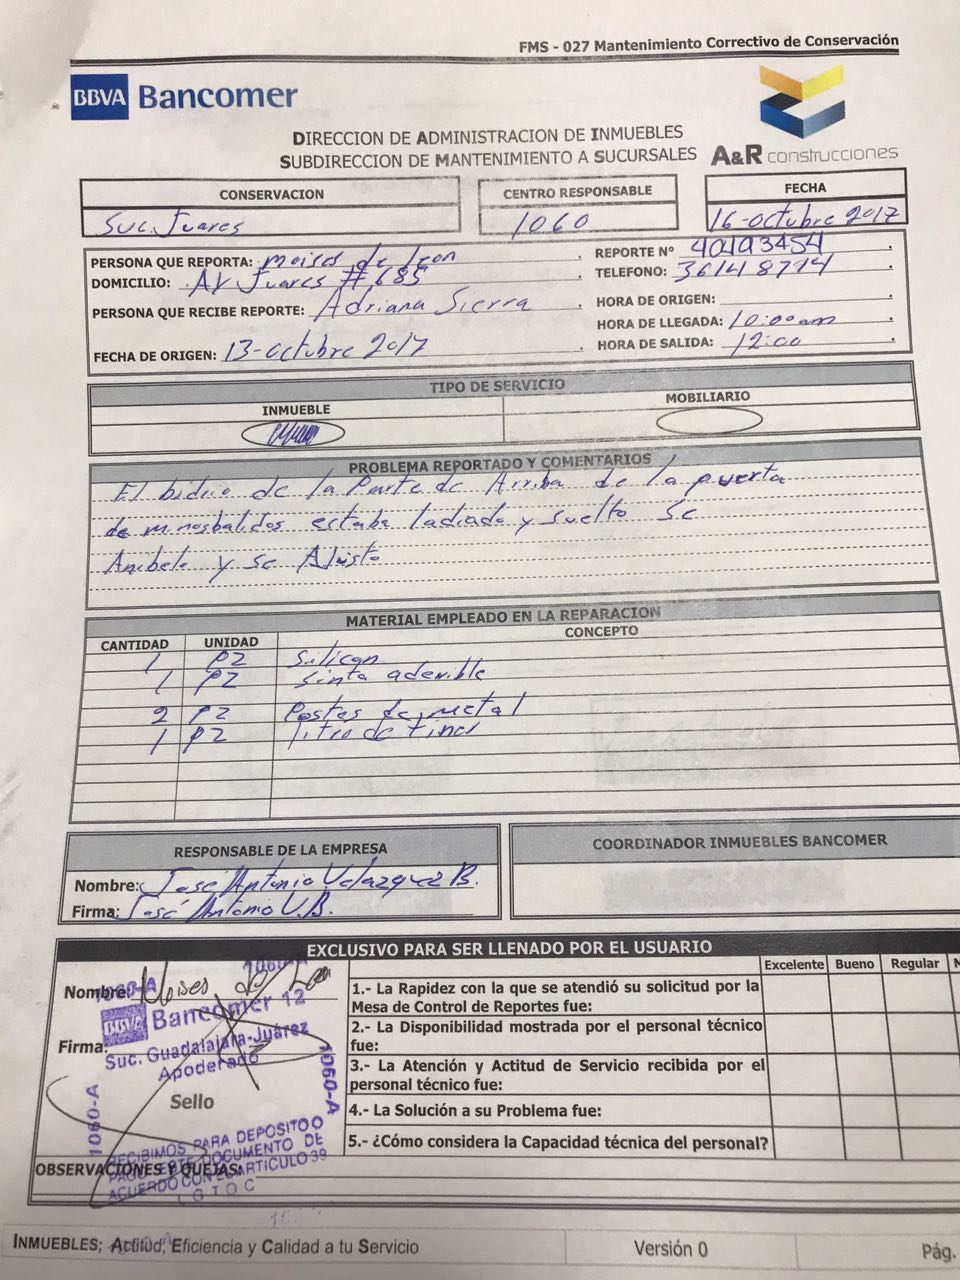 FMS - 027 Mantenimiento Correctivo de Conservación
BBVA Bancomer
DIRECCION DE ADMINISTRACION DE INMUEBLES
SUBDIRECCION DE MANTENIMIENTO A SUCURSALES
A&R construcciones
CONSERVACION
Suc. Juares
CENTRO RESPONSABLE
1060
FECHA
16-octubre 2017
PERSONA QUE REPORTA: moises de leon
REPORTE Nº
DOMICILIO: AV Juares # 685
TELEFONO: 36148774
PERSONA QUE RECIBE REPORTE: Adriana Sierra
HORA DE ORIGEN:
HORA DE LLEGADA: 10:00am
FECHA DE ORIGEN: 13-octubre 2017
HORA DE SALIDA: 12:00
TIPO DE SERVICIO
INMUEBLE
MOBILIARIO
PROBLEMA REPORTADO Y COMENTARIOS
El bidrio de la Parte de Arriba de la puerta
de minosbalidos estaba ladiado y suelto Se
y se
MATERIAL EMPLEADO EN LA REPARACION
CANTIDAD UNIDAD CONCEPTO
1 PZ Silicon
1 PZ sinta
2 PZ Postes de metal
1 PZ litro de tiner
RESPONSABLE DE LA EMPRESA
Nombre: José Antonio Velazquez B.
Firma: José Antonio V.B.
COORDINADOR INMUEBLES BANCOMER
EXCLUSIVO PARA SER LLENADO POR EL USUARIO
Nombre: Moises de Leon
Firma:
Sello
1060-A
1060-A
BBVA Bancomer 12
Suc. Guadalajara-Juárez
Apoderado
1060-A
1060-A
RECIBIMOS PARA DEPOSITO O
PAGO ESTE DOCUMENTO DE
ACUERDO CON EL ARTICULO 39
L G T O C
Excelente Bueno Regular
1.- La Rapidez con la que se atendió su solicitud por la
Mesa de Control de Reportes fue:
2.- La Disponibilidad mostrada por el personal técnico
fue:
3.- La Atención y Actitud de Servicio recibida por el
personal técnico fue:
4.- La Solución a su Problema fue:
5.- ¿Cómo considera la Capacidad técnica del personal?
OBSERVACIONES Y QUEJAS:
INMUEBLES; Actitud, Eficiencia y Calidad a tu Servicio
Versión 0
Pág.